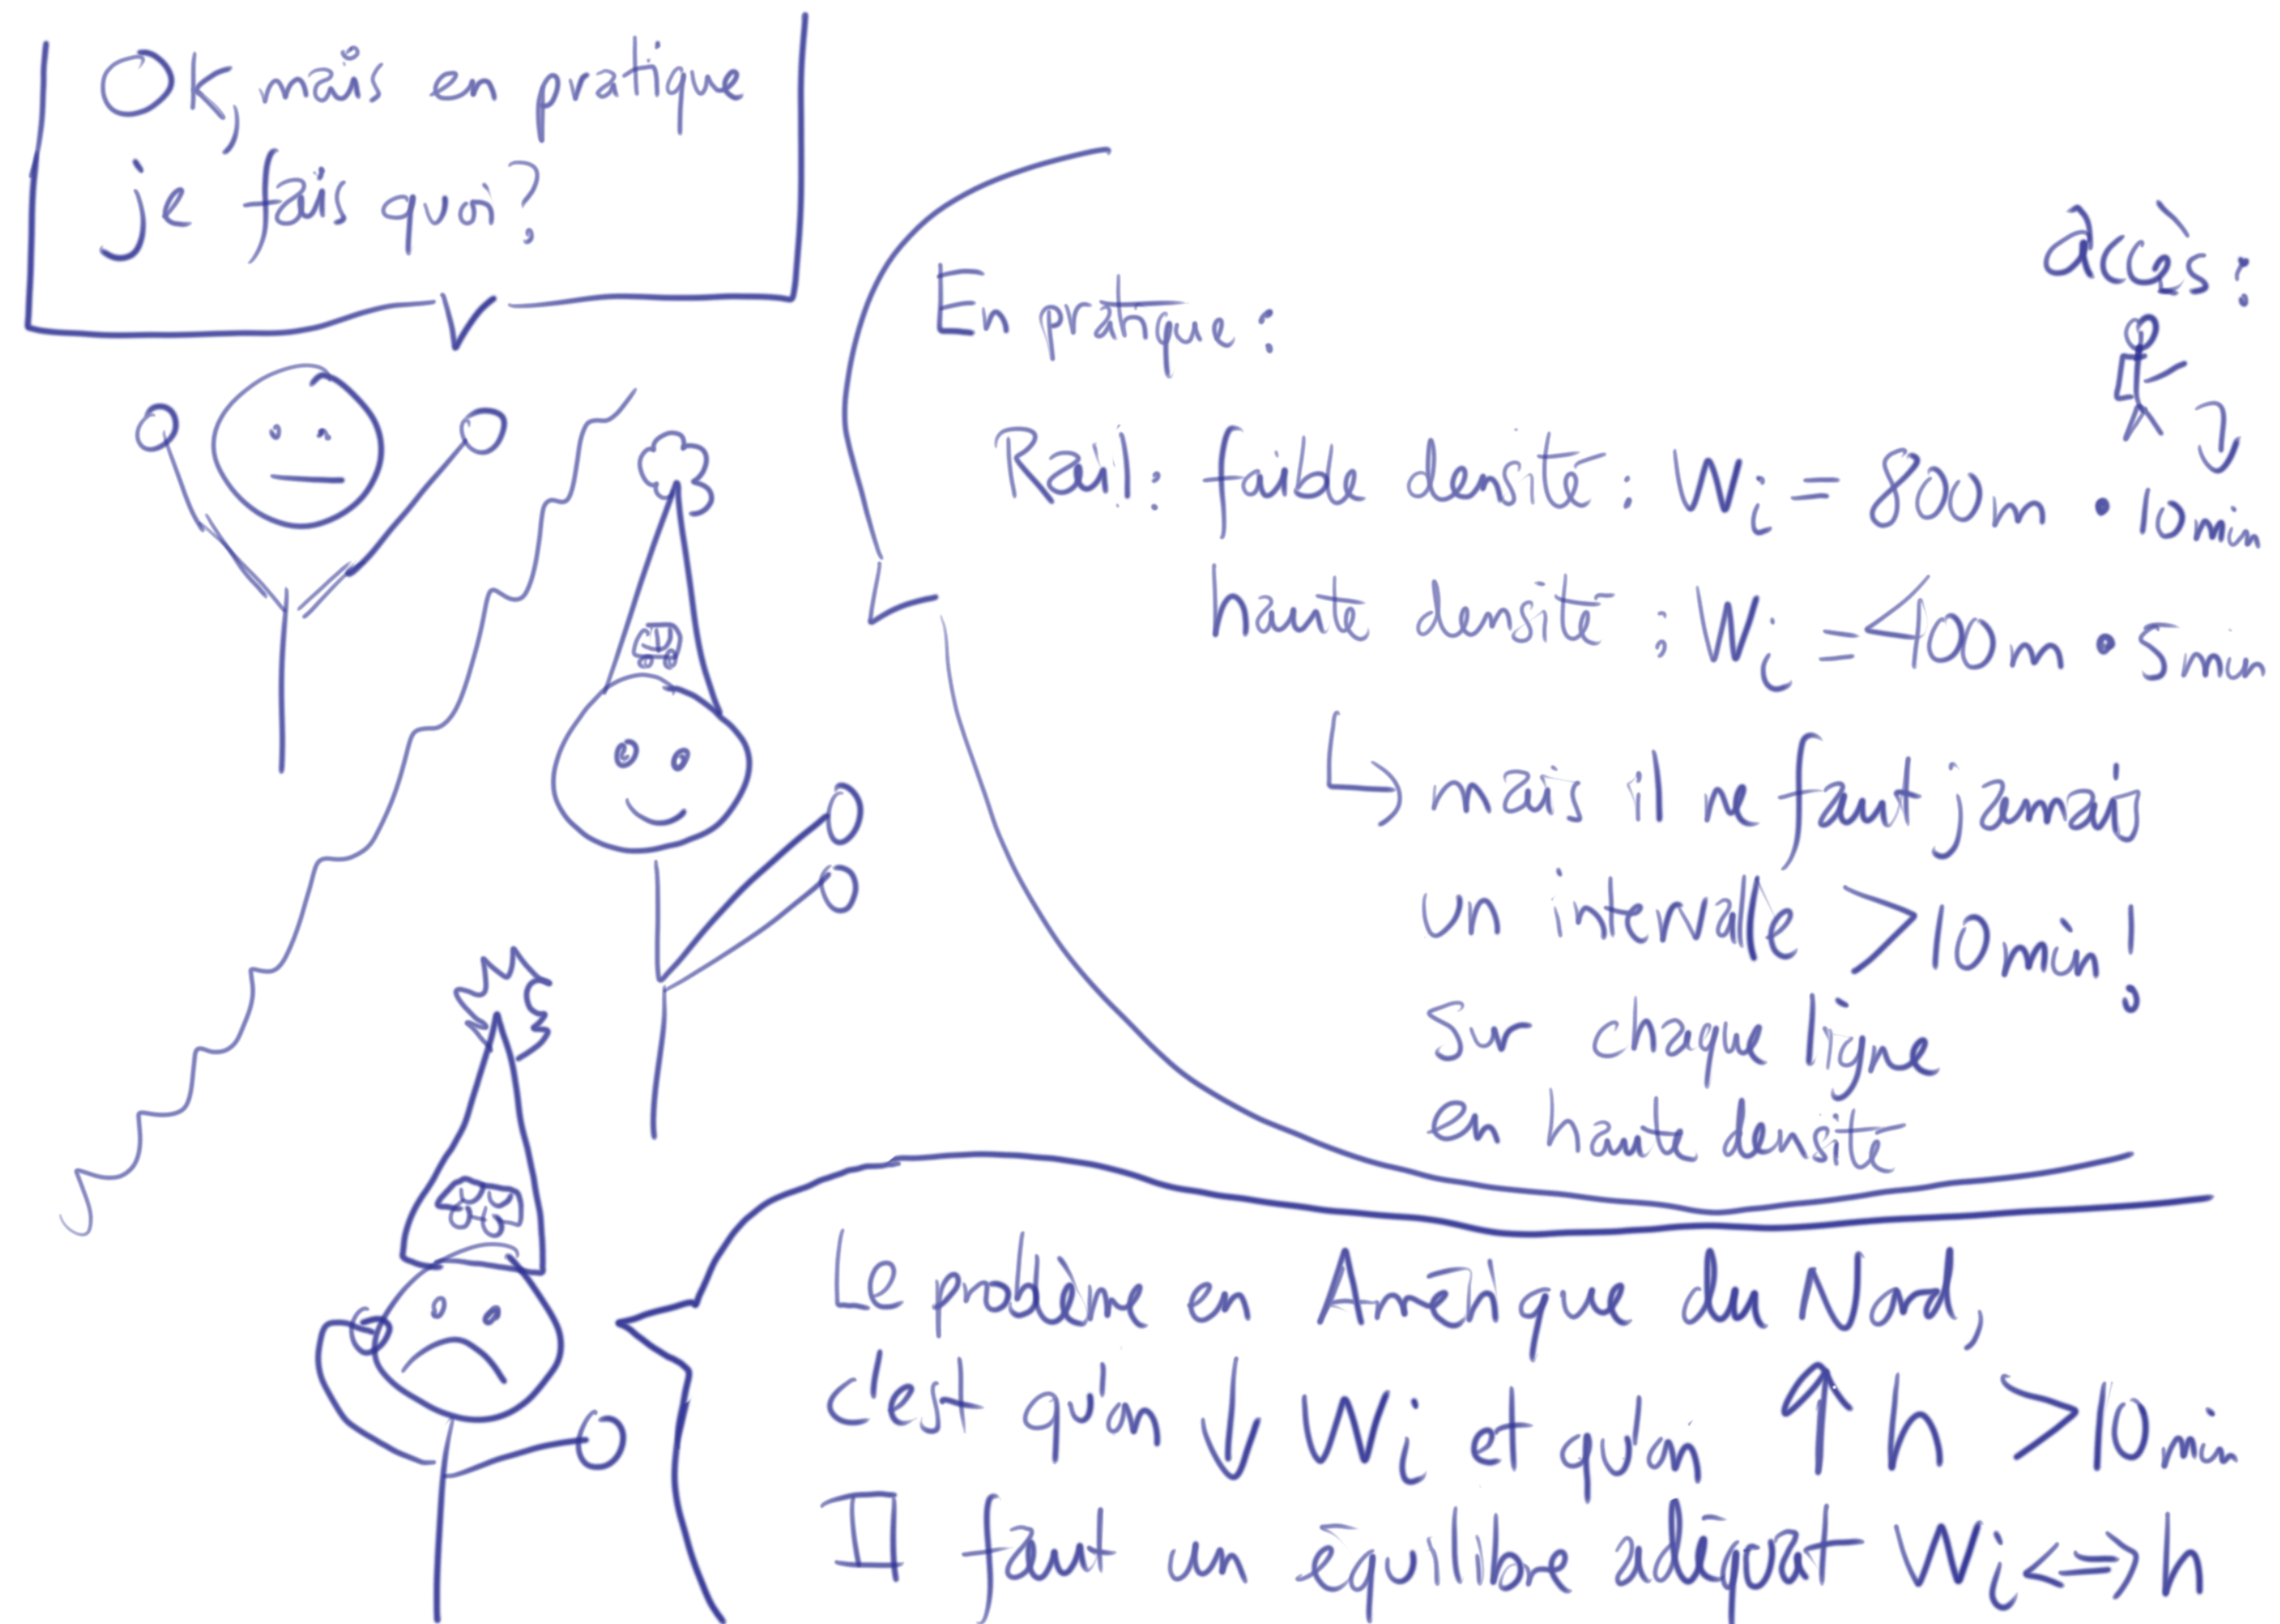 Ok, mais en pratique
je fais quoi?
En pratique:
accès:
Rail: faible densité: Wi = 800m • 10min
haute densité: Wi = 400m • 5min
↳ mais il ne faut jamais
un intervalle > 10min!
sur chaque ligne
en haute densité
Le problème en Amérique du Nord,
c'est qu'on ↓ Wi et qu'on ↑ h > 10min
Il faut un équilibre adéquat Wi <=> h